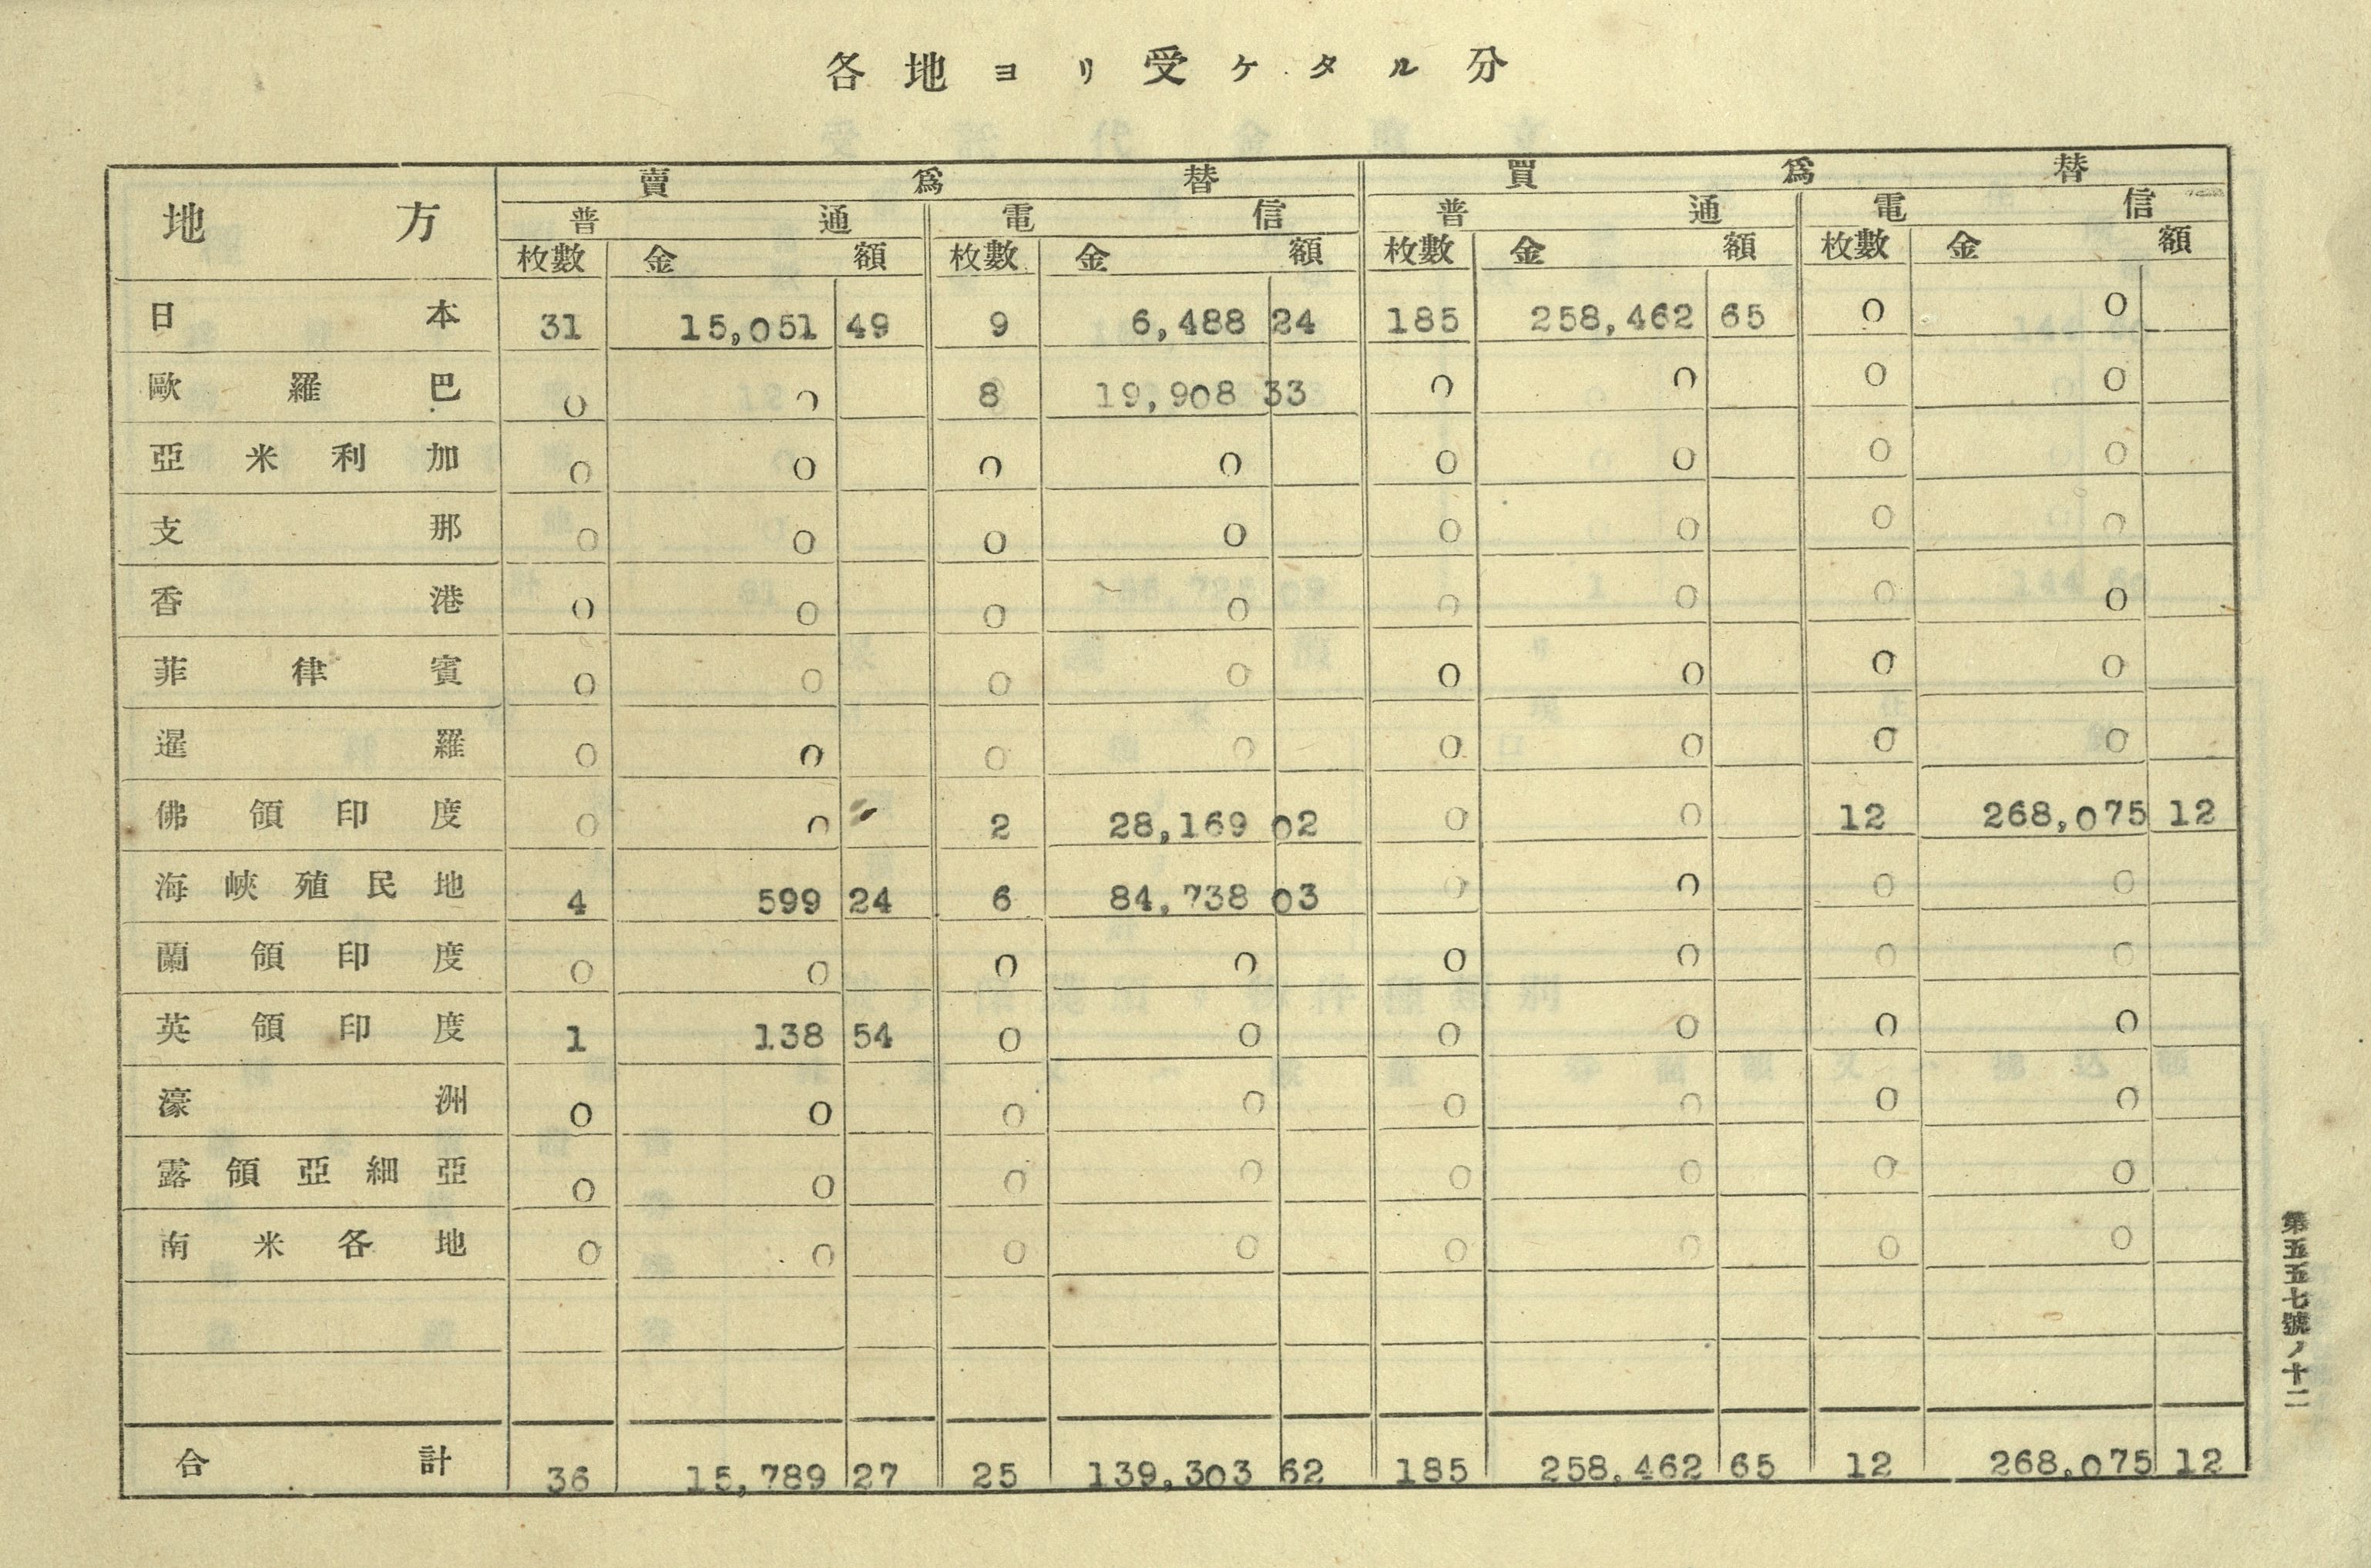 各地ヨリ受ケタル分
地方 賣爲替 買爲替
普通 電信 普通 電信
枚數 金額 枚數 金額 枚數 金額 枚數 金額
日本 31 15,051 49 9 6,488 24 185 258,462 65 0 0
歐羅巴 0 0 8 19,908 33 0 0 0 0
亞米利加 0 0 0 0 0 0 0 0
支那 0 0 0 0 0 0 0 0
香港 0 0 0 0 0 0 0 0
菲律賓 0 0 0 0 0 0 0 0
暹羅 0 0 0 0 0 0 0 0
佛領印度 0 0 2 28,169 02 0 0 12 268,075 12
海峽殖民地 4 599 24 6 84,738 03 0 0 0 0
蘭領印度 0 0 0 0 0 0 0 0
英領印度 1 138 54 0 0 0 0 0 0
濠洲 0 0 0 0 0 0 0 0
露領亞細亞 0 0 0 0 0 0 0 0
南米各地 0 0 0 0 0 0 0 0
合計 36 15,789 27 25 139,303 62 185 258,462 65 12 268,075 12
第五五七號ノ十二